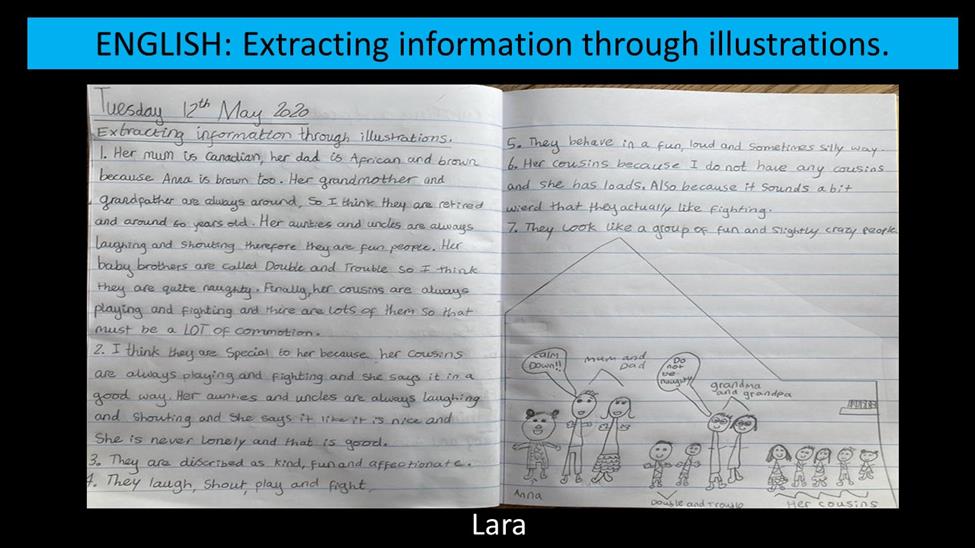 ENGLISH: Extracting information through illustrations.
Tuesday 12th May 2020
Extracting information through illustrations.
1. Her mum is Canadian, her dad is African and brown
because Anna is brown too. Her grandmother and
grandfather are always around, so I think they are retired
and around 60 years old. Her aunties and uncles are always
laughing and shouting therefore they are fun people. Her
baby brothers are called Double and Trouble so I think
they are quite naughty. Finally, her cousins are always
playing and fighting and there are lots of them so that
must be a LOT of commotion.
2. I think they are special to her because her cousins
are always playing and fighting and she says it in a
good way. Her aunties and uncles are always laughing
and shouting and she says it like it is nice and
She is never lonely and that is good.
3. They are discribed as kind, fun and affectionate.
4. They laugh, shout, play and fight.
5. They behave in a fun, loud and sometimes silly way.
6. Her cousins because I do not have any cousins
and she has loads. Also because it sounds a bit
wierd that they actually like fighting.
7. They look like a group of fun and slightly crazy people
calm
down!!
mum and
dad
Do
not
be
naughty
grandma
and grandpa
Anna
Double and Trouble
Her cousins
Lara